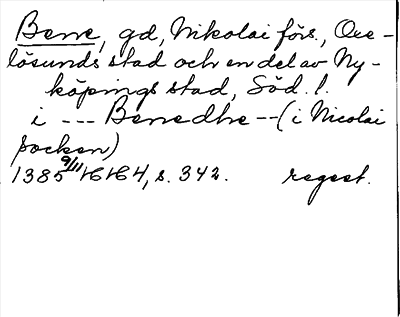 Bene, gd, Nikolai förs., Oxe-
lösunds stad och en del av Ny-
köpings stad, Söd. l.
i --- Benedhe -- (i Nicolai
socken)
1385 9/11 , s. 342. regest.